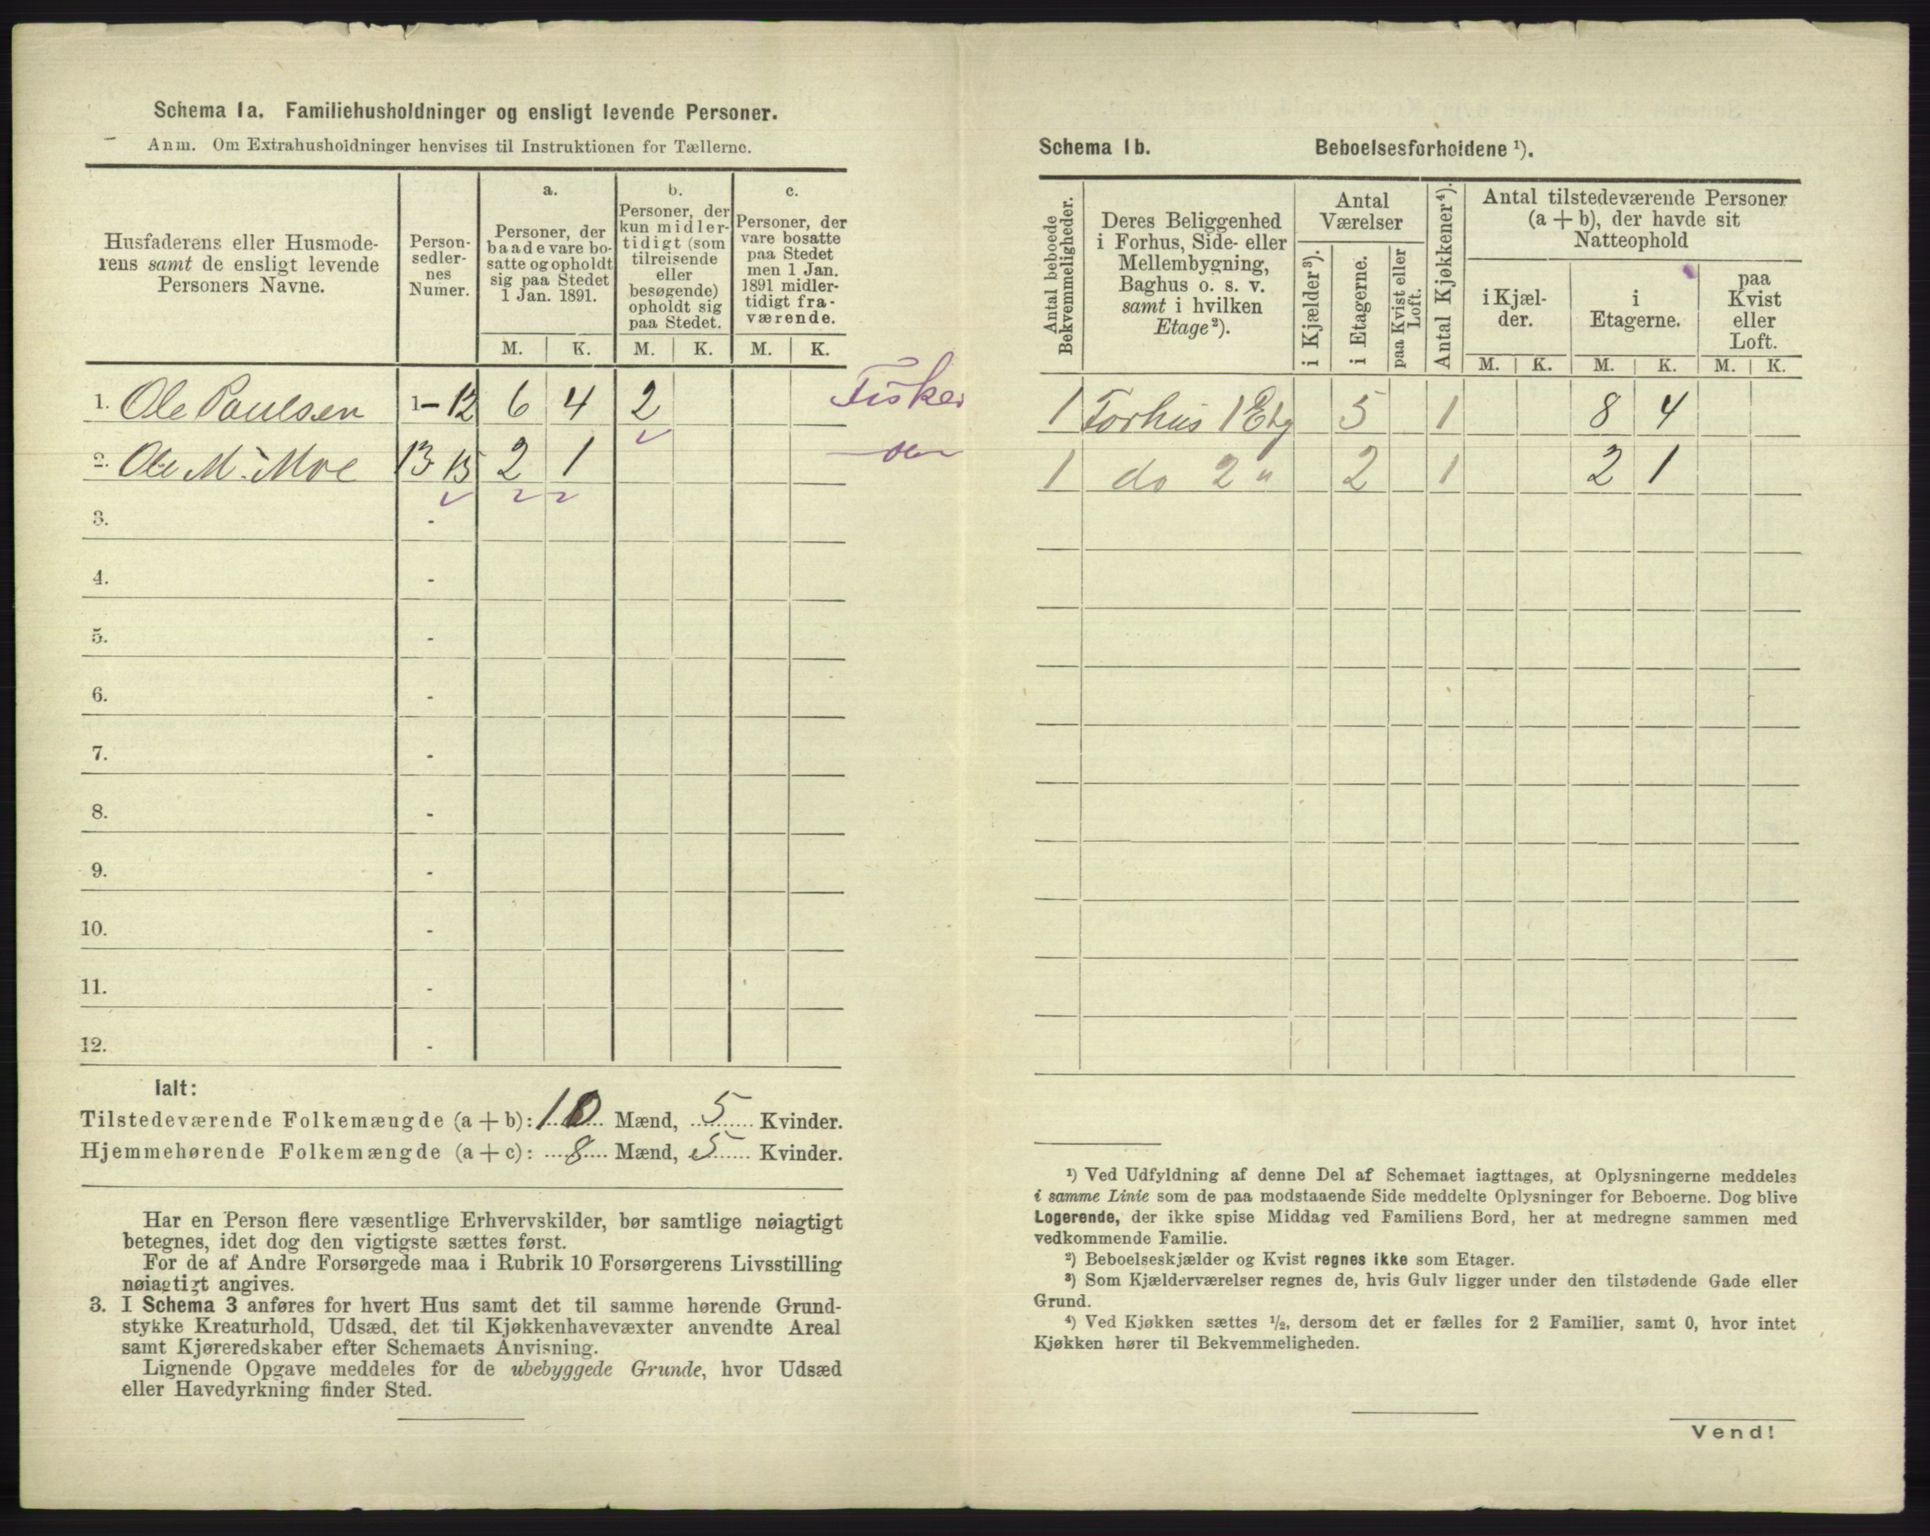 Schema 1a. Familiehusholdninger og ensligt levende Personer.
Anm. Om Extrahusholdninger henvises til Instruktionen for Tællerne.
Husfaderens eller Husmoderens samt de ensligt levende Personers Navne.
Person-
sedler-
nes
Numer.
a.
Personer, der
baade vare bo-
satte og opholdt
sig paa Stedet
1 Jan. 1891.
b.
Personer, der
kun midler-
tidigt (som
tilreisende
eller
besøgende)
opholdt sig
paa Stedet.
c.
Personer, der
vare bosatte
paa Stedet
men 1 Jan.
1891 midler-
tidigt fra-
værende.
M. K. M. K. M. K.
1. Ole Paulsen 1-12 6 4 2 Fisker
2. Ole M. Moe 13-15 2 1
3. -
4. -
5. -
6. -
7. -
8. -
9. -
10. -
11. -
12. -
Ialt:
Tilstedeværende Folkemængde (a + b): 10 Mænd, 5 Kvinder.
Hjemmehørende Folkemængde (a + c): 8 Mænd, 5 Kvinder.
Har en Person flere væsentlige Erhvervskilder, bør samtlige nøiagtigt
betegnes, idet dog den vigtigste sættes først.
For de af Andre Forsørgede maa i Rubrik 10 Forsørgerens Livsstilling
nøiagtigt angives.
3. I Schema 3 anføres for hvert Hus samt det til samme hørende Grund-
stykke Kreaturhold, Udsæd, det til Kjøkkenhavevæxter anvendte Areal
samt Kjøreredskaber efter Schemaets Anvisning.
Lignende Opgave meddeles for de ubebyggede Grunde, hvor Udsæd
eller Havedyrkning finder Sted.
Schema 1b. Beboelsesforholdene ¹).
Antal beboede
Bekvemmeligheder.
Deres Beliggenhed
i Forhus, Side- eller
Mellembygning,
Baghus o. s. v.
samt i hvilken
Etage²).
Antal
Værelser
i Kjælder³).
i Etagerne.
paa Kvist eller
Loft.
Antal Kjøkkener⁴).
Antal tilstedeværende Personer
(a + b), der havde sit
Natteophold
i Kjæl-
der.
i
Etagerne.
paa
Kvist
eller
Loft.
M. K. M. K. M. K.
1 Forhus 1 Etg 5 1 8 4
1 do 2 " 2 1 2 1
¹) Ved Udfyldning af denne Del af Schemaet iagttages, at Oplysningerne meddeles
i samme Linie som de paa modstaaende Side meddelte Oplysninger for Beboerne. Dog blive
Logerende, der ikke spise Middag ved Familiens Bord, her at medregne sammen med
vedkommende Familie.
²) Beboelseskjælder og Kvist regnes ikke som Etager.
³) Som Kjælderværelser regnes de, hvis Gulv ligger under den tilstødende Gade eller
Grund.
⁴) Ved Kjøkken sættes ½, dersom det er fælles for 2 Familier, samt 0, hvor intet
Kjøkken hører til Bekvemmeligheden.
Vend!